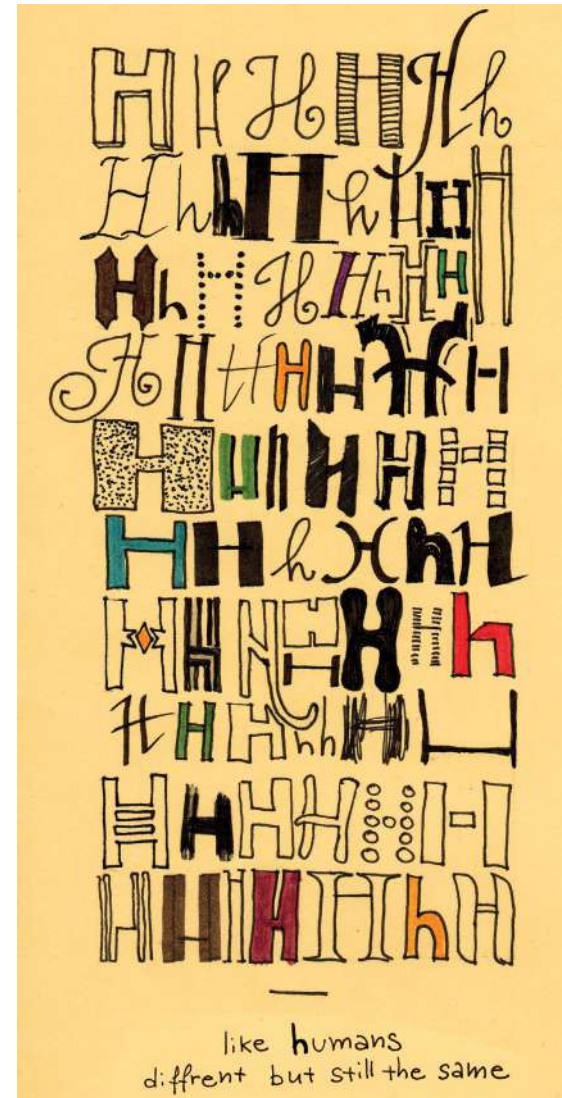 H h H H H h
H h h H h H H H
H h H H H h H H
H H H H H H H
H H h H H H
H H h H h H
H h H H H H H h
H H H h h H H
H H H H H H
H H H H H h H
like humans
diffrent but still the same